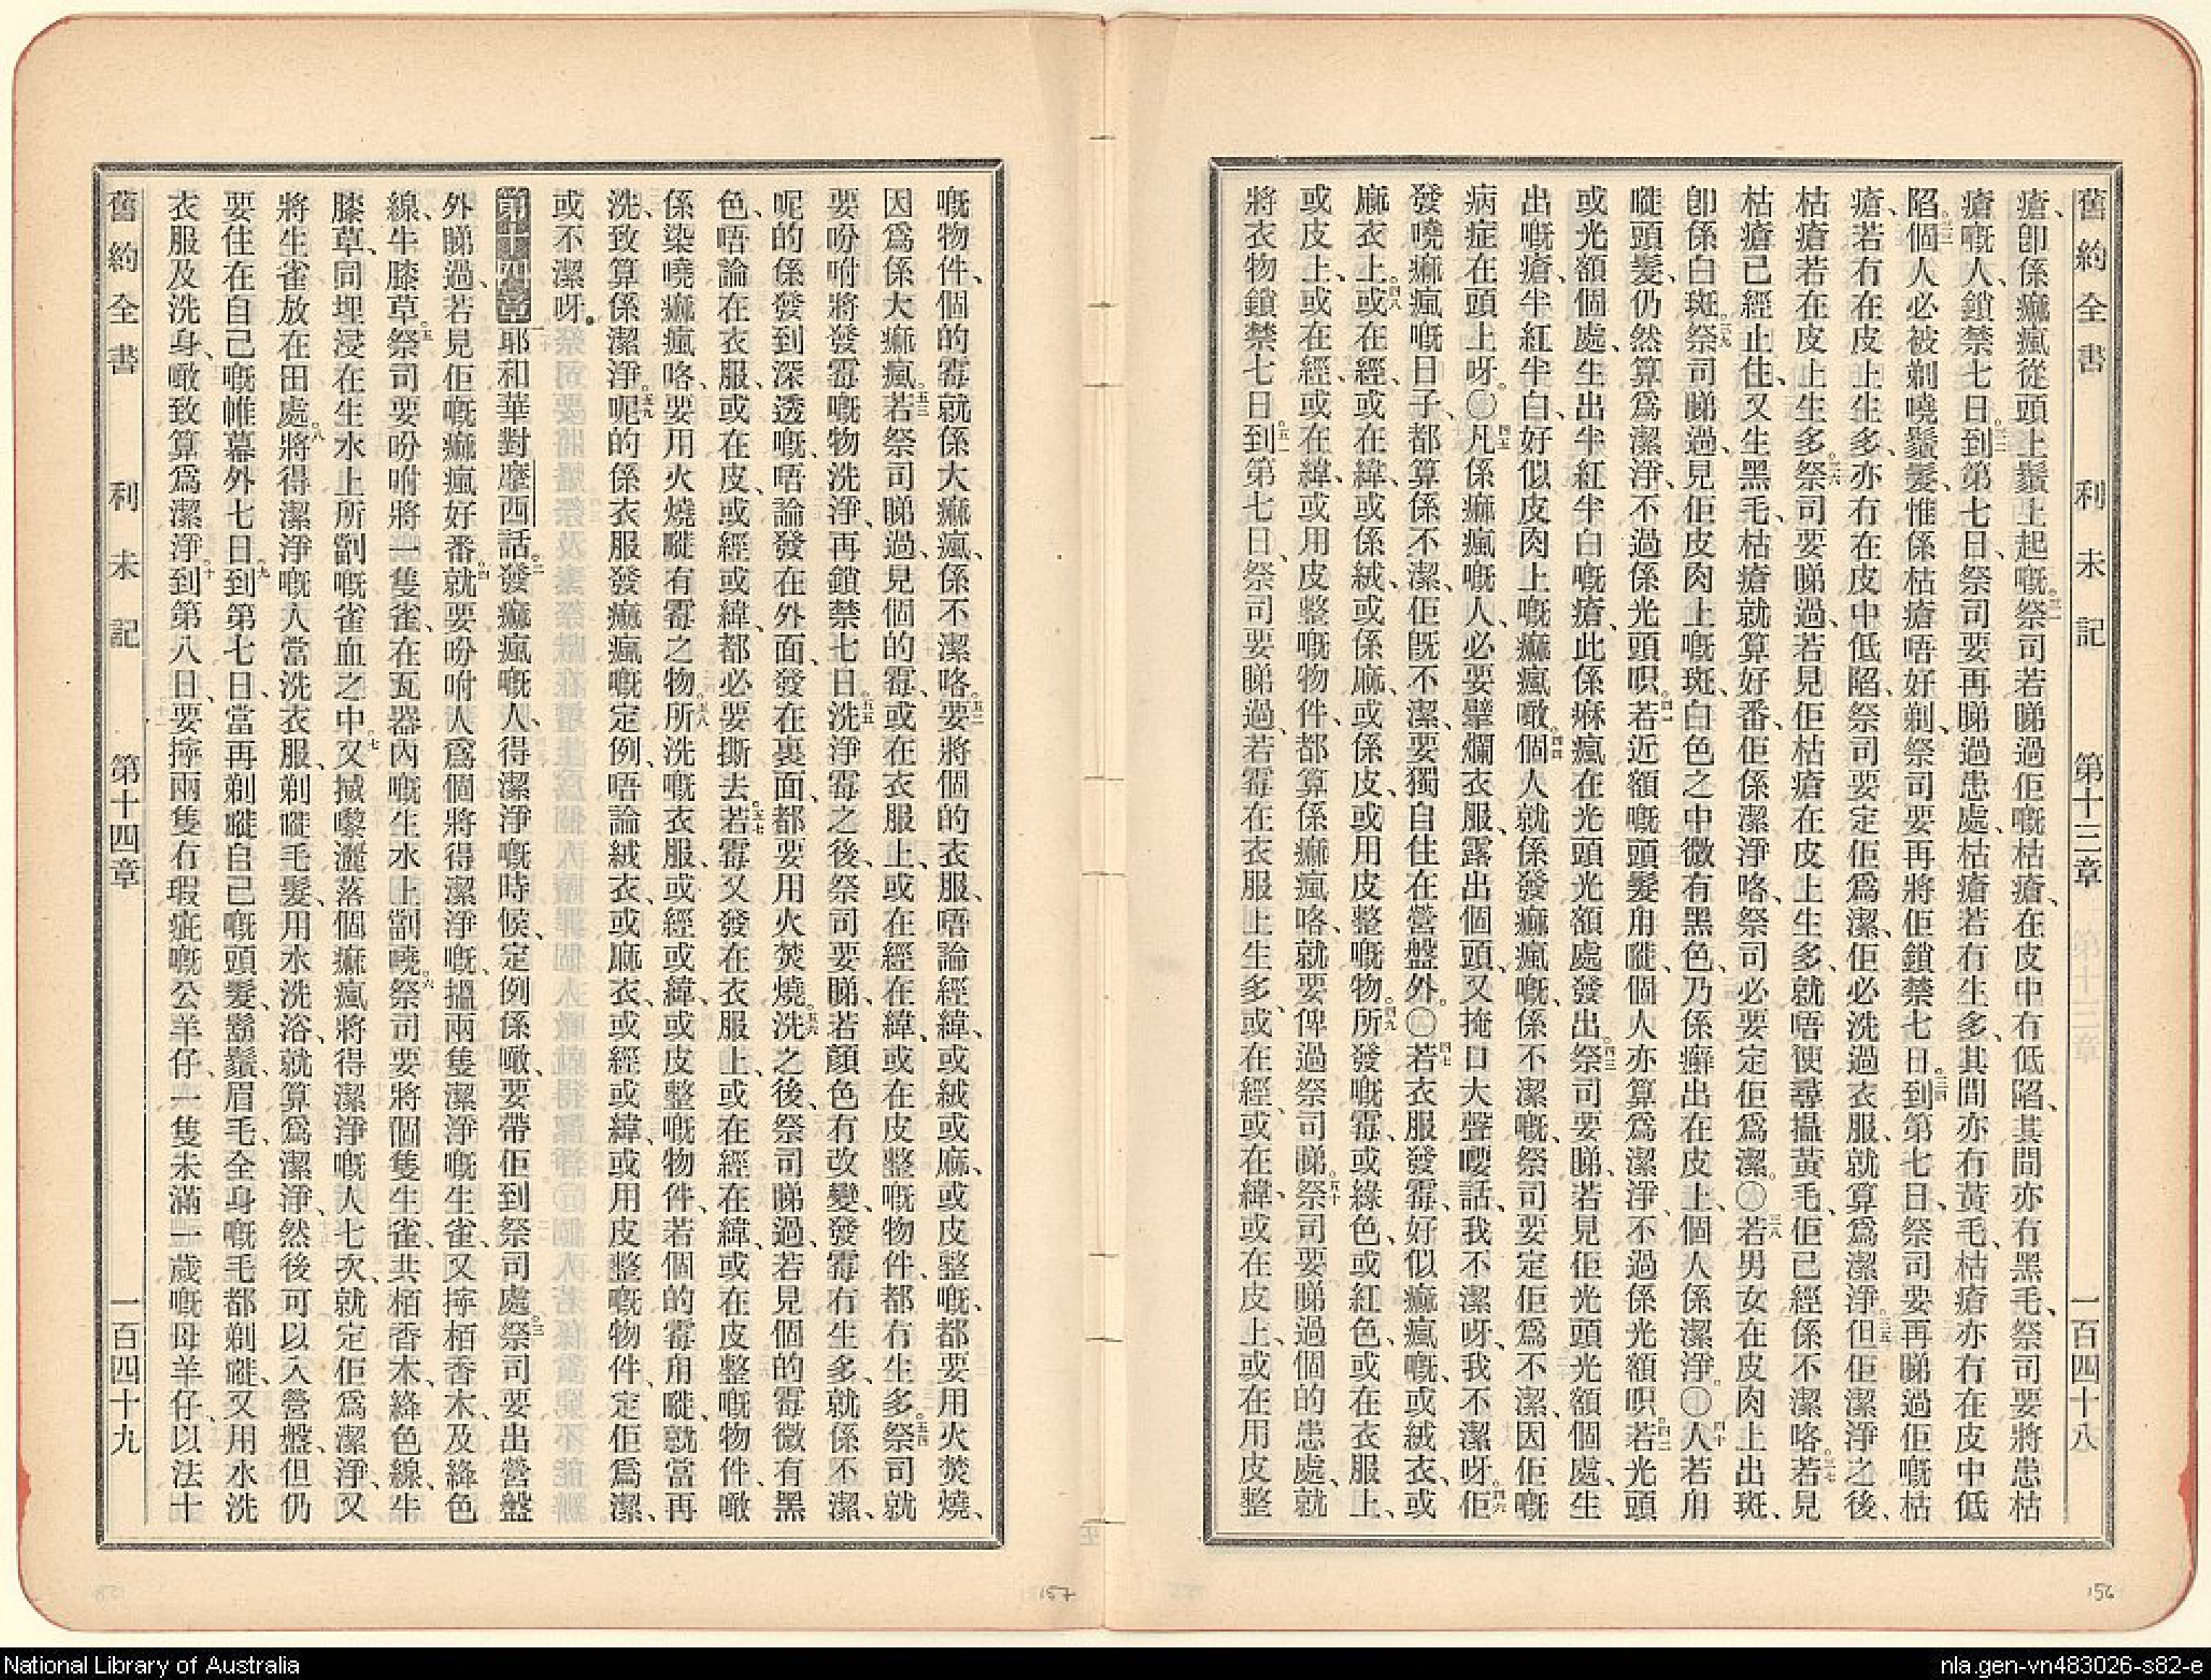 舊約全書 利未記 第十三章 一百四十八
瘡、卽係癲瘋從頭上鬚上起嘅。三一祭司若睇過佢嘅枯瘡、在皮中冇低陷、其間亦冇黑毛、祭司要將患枯
瘡嘅人、鎖禁七日。三二到第七日、祭司要再睇過患處、枯瘡若冇生多、其間亦冇黃毛、枯瘡亦冇在皮中低
陷。三三個人必被剃嘵鬚髮、惟係枯瘡唔好剃、祭司要再將佢鎖禁七日。三四到第七日、祭司要再睇過佢嘅枯
瘡、若冇在皮上生多、亦冇在皮中低陷、祭司要定佢爲潔、佢必洗過衣服、就算爲潔淨。三五但佢潔淨之後、
枯瘡若在皮上生多。三六祭司要睇過、若見佢枯瘡在皮上生多、就唔使尋攝黃毛、佢已經係不潔咯。三七若見
枯瘡已經止住、又生黑毛、枯瘡就算好番、佢係潔淨咯、祭司必要定佢爲潔。〇三八若男女在皮肉上出斑、
卽係白斑。三九祭司睇過、見佢皮肉上嘅斑、白色之中微有黑色、乃係癬出在皮上、個人係潔淨。〇四十人若甪
嘥頭髮、仍然算爲潔淨、不過係光頭呮。四一若近額嘅頭髮甪嘥、個人亦算爲潔淨、不過係光額呮。四二若光頭
或光額個處、生出半紅半白嘅瘡、此係痳瘋在光頭光額處發出。四三祭司要睇、若見佢光頭光額個處、生
出嘅瘡、半紅半白、好似皮肉上嘅痲瘋噉。四四個人就係發痲瘋嘅、係不潔嘅、祭司要定佢爲不潔、因佢嘅
病症在頭上呀。〇四五凡係痲瘋嘅人、必要擘爛衣服、露出個頭、又掩口大聲嚶話、我不潔呀、我不潔呀。四六佢
發嘵痲瘋嘅日子、都算係不潔、佢旣不潔、要獨自住在營盤外。〇四七若衣服發霉、好似痲瘋嘅、或絨衣、或
麻衣上。四八或在經、或在緯、或係絨、或係麻、或係皮、或用皮整嘅物。四九所發嘅霉、或綠色、或紅色、或在衣服上、
或皮上、或在經、或在緯、或用皮整嘅物件、都算係痲瘋咯、就要俾過祭司睇。五十祭司要睇過個的患處、就
將衣物鎖禁七日。五一到第七日、祭司要睇過、若霉在衣服上生多、或在經、或在緯、或在皮上、或在用皮整
嘅物件、個的霉就係大痲瘋、係不潔咯。五二要將個的衣服、唔論經緯、或絨或麻、或皮整嘅、都要用火焚燒、
因爲係大痲瘋。五三若祭司睇過、見個的霉、或在衣服上、或在經在緯、或在皮整嘅物件、都冇生多。五四祭司就
要吩咐將發霉嘅物洗淨、再鎖禁七日。五五洗淨霉之後、祭司要睇、若顏色冇改變、發霉冇生多、就係不潔、
呢的係發到深透嘅、唔論發在外面、發在裏面、都要用火焚燒。五六洗之後、祭司睇過、若見個的霉微有黑
色、唔論在衣服、或在皮、或經或緯、都必要撕去。五七若霉又發在衣服上、或在經在緯、或在皮整嘅物件、噉
係染嘵痲瘋咯、要用火燒嘥有霉之物。五八所洗嘅衣服、或經或緯、或皮整嘅物件、若個的霉甪嘥、就當再
洗、致算係潔淨。五九呢的係衣服發痲瘋嘅定例、唔論絨衣或麻衣、或經或緯、或用皮整嘅物件、定佢爲潔、
或不潔呀。
第十四章 一耶和華對摩西話。二發痲瘋嘅人、得潔淨嘅時候、定例係噉、要帶佢到祭司處。三祭司要出營盤
外睇過、若見佢嘅痲瘋好番。四就要吩咐人爲個將得潔淨嘅、搵兩隻潔淨嘅生雀、又擰栢香木、及絳色
線、牛膝草。五祭司要吩咐將一隻雀、在瓦器內嘅生水上劏嘵。六祭司要將個隻生雀、共栢香木、絳色線、牛
膝草、同埋浸在生水上所劏嘅雀血之中。七又搣嚟灑落個痲瘋將得潔淨嘅人七次、就定佢爲潔淨、又
將生雀放在田處。八將得潔淨嘅人當洗衣服、剃嘥毛髮、用水洗浴、就算爲潔淨、然後可以入營盤、但仍
要住在自己嘅帷幕外七日。九到第七日、當再剃嘥自己嘅頭髮、鬍鬚、眉毛、全身嘅毛都剃嘥、又用水洗
衣服及洗身、噉致算爲潔淨。十到第八日、要擰兩隻冇瑕疵嘅公羊仔、一隻未滿一歲嘅母羊仔、以法十
舊約全書 利未記 第十四章 一百四十九
156
157
National Library of Australia
nla.gen-vn483026-s82-e